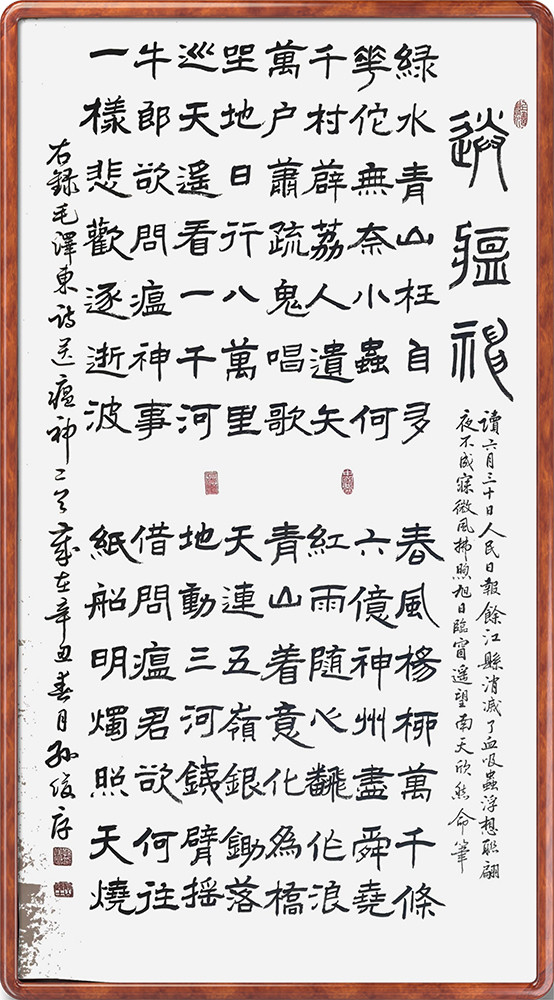 送瘟神
讀六月三十日人民日報餘江縣消滅了血吸蟲浮想聯翩
夜不成寐微風拂煦旭日臨窗遙望南天欣然命筆
綠水青山枉自多
華佗無奈小蟲何
千村薜荔人遺矢
萬户蕭疏鬼唱歌
坐地日行八萬里
巡天遙看一千河
牛郎欲問瘟神事
一樣悲歡逐逝波
春風楊柳萬千條
六億神州盡舜堯
紅雨隨心翻作浪
青山着意化為橋
天連五嶺銀鋤落
地動三河鐵臂搖
借問瘟君欲何往
紙船明燭照天燒
右錄毛澤東詩送瘟神二首歲在辛丑春月孫俊存